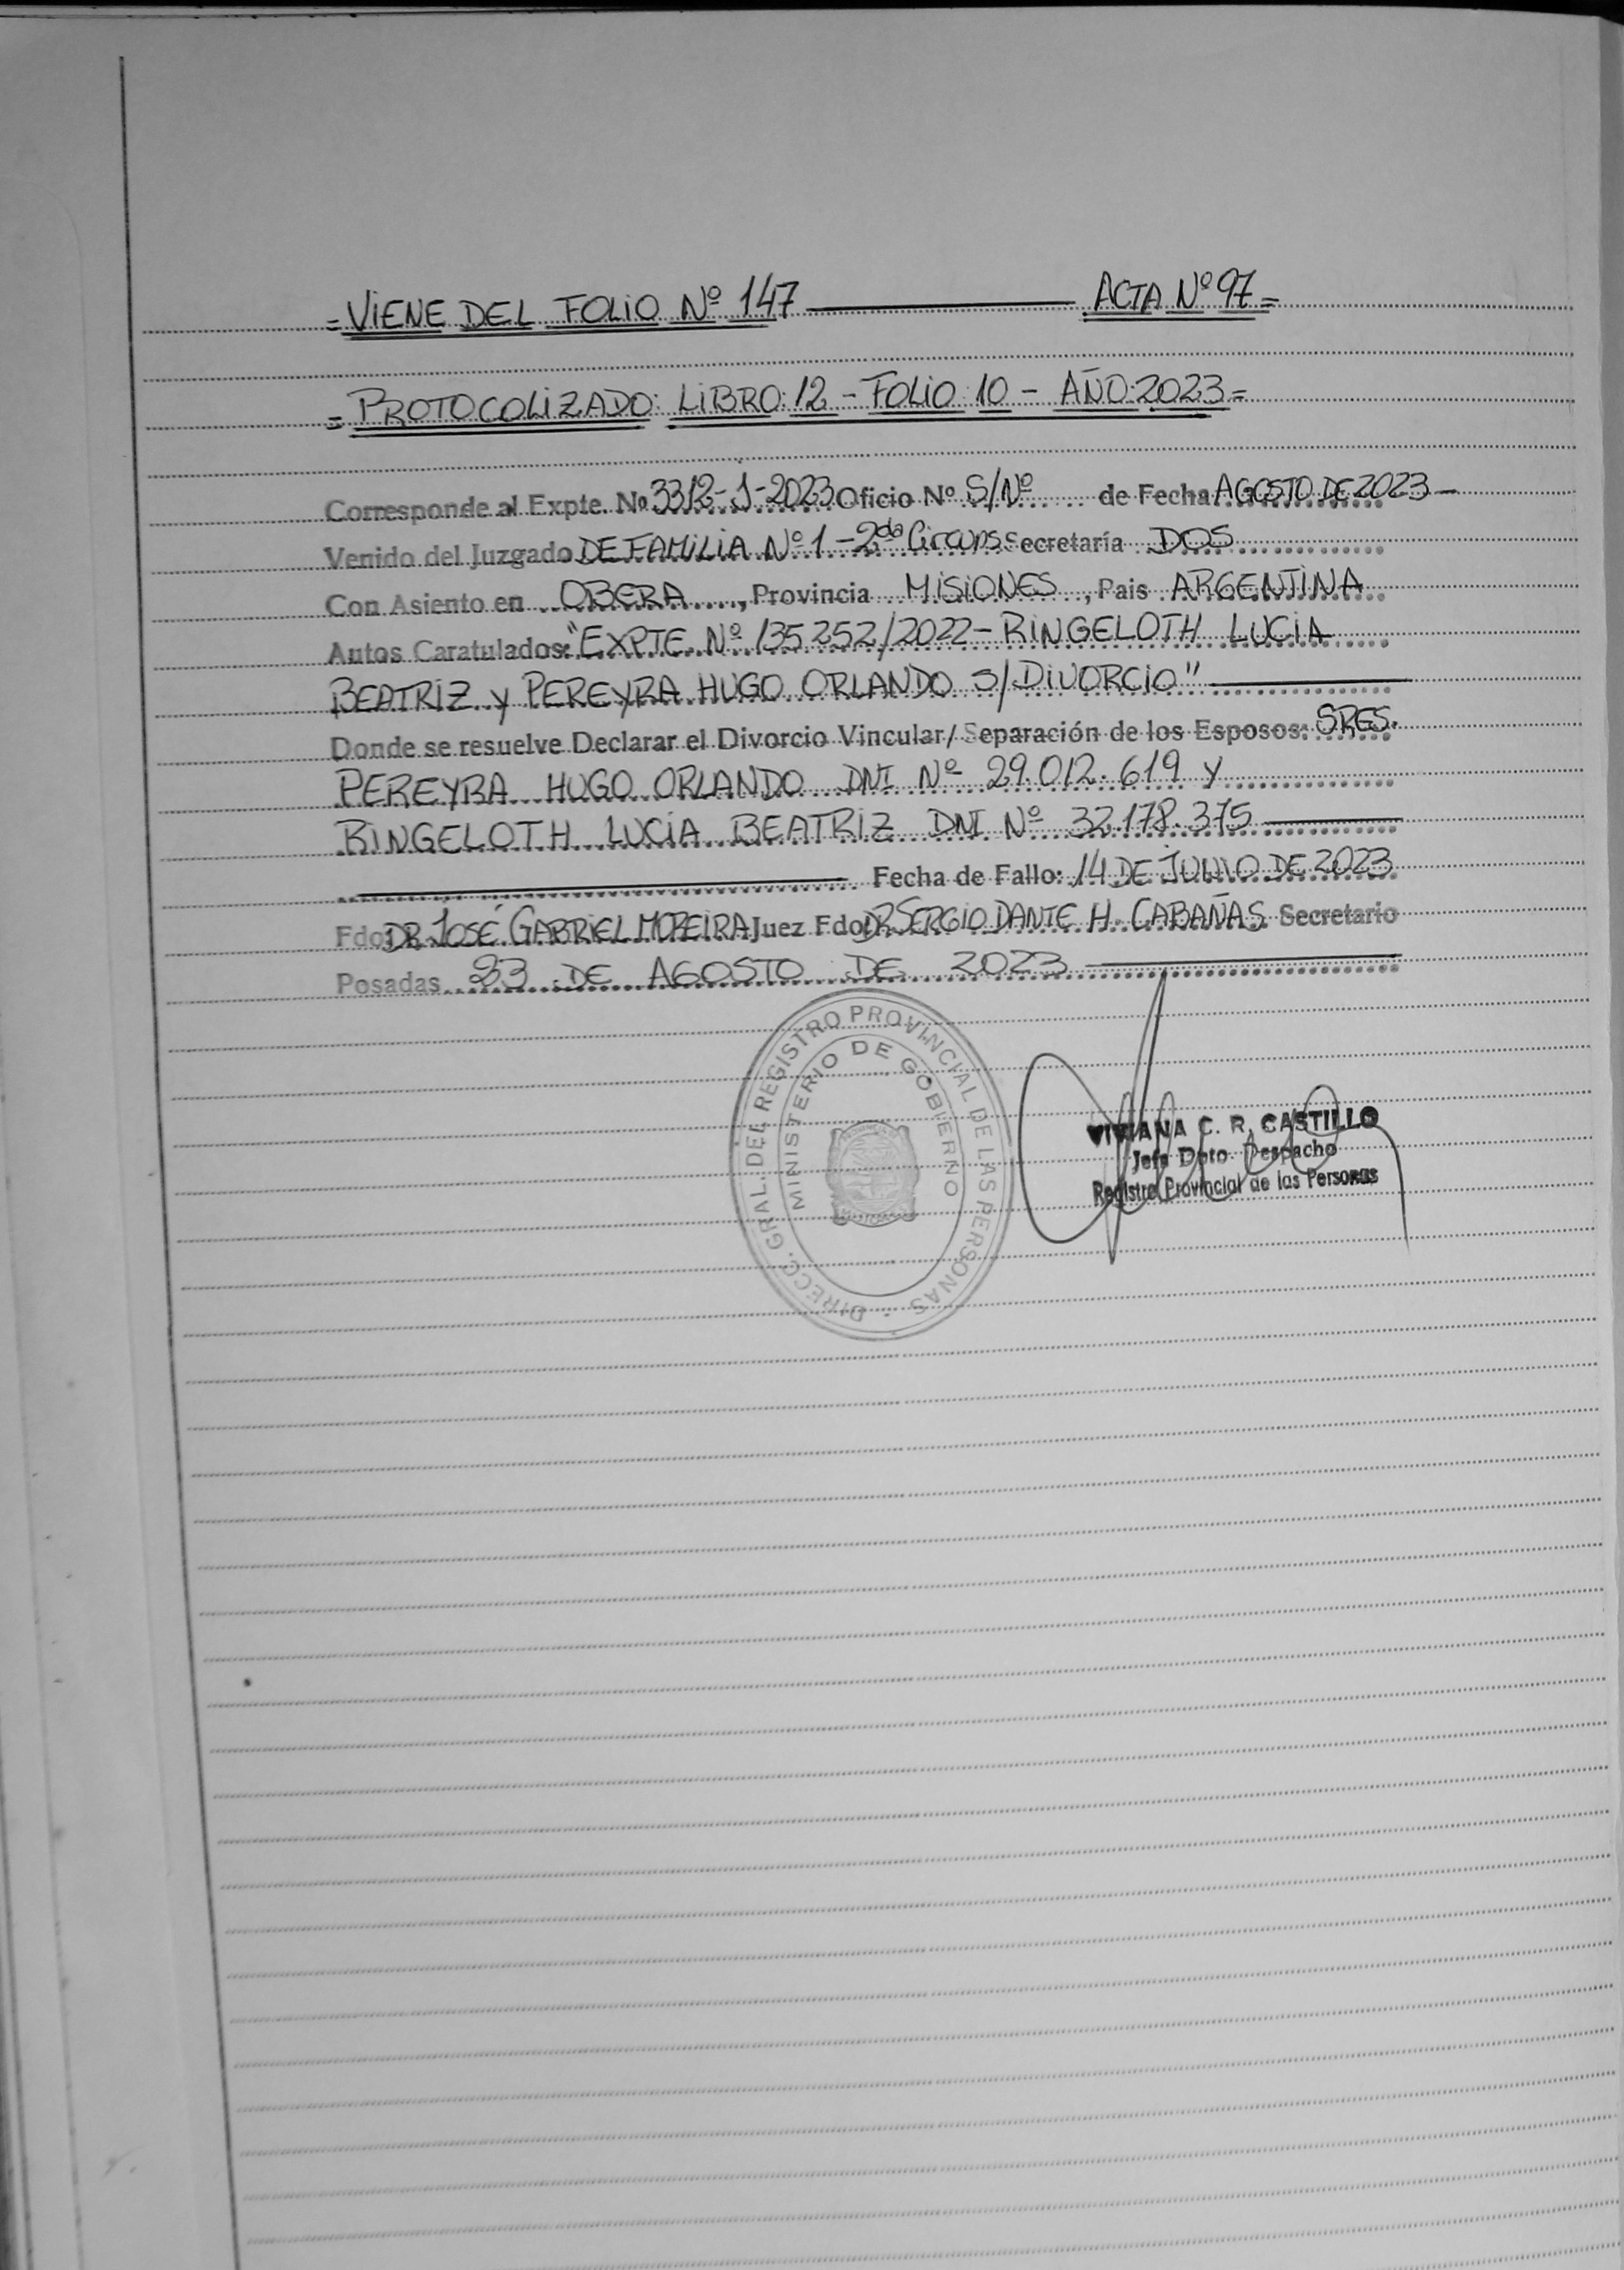 =VIENE DEL FOLIO Nº 147 ACTA Nº 97=
=PROTOCOLIZADO: LIBRO: 12 - FOLIO: 10 - AÑO: 2023=
Corresponde al Expte. Nº 3312-J-2023 Oficio Nº S/Nº de Fecha AGOSTO DE 2023-
Venido del Juzgado DE FAMILIA Nº 1 - 2da Circuns. Secretaría DOS
Con Asiento en OBERA, Provincia MISIONES, Pais ARGENTINA
Autos Caratulados: "EXPTE. Nº 135.252/2022 - RINGELOTH LUCIA
BEATRIZ y PEREYRA HUGO ORLANDO S/DIVORCIO"
Donde se resuelve Declarar el Divorcio Vincular/Separación de los Esposos: SRES.
PEREYRA HUGO ORLANDO DNI Nº 29.012.619 y
RINGELOTH LUCIA BEATRIZ DNI Nº 32.178.375
Fecha de Fallo: 14 DE JUNIO DE 2023
Fdo: DR. JOSÉ GABRIEL MOREIRA Juez Fdo: DR SERGIO DANTE H. CABAÑAS Secretario
Posadas 23 DE AGOSTO DE 2023
DIRECC. GRAL. DEL REGISTRO PROVINCIAL DE LAS PERSONAS
MINISTERIO DE GOBIERNO
VIVIANA C. R. CASTILLO
Jefa Dpto. Despacho
Registro Provincial de las Personas